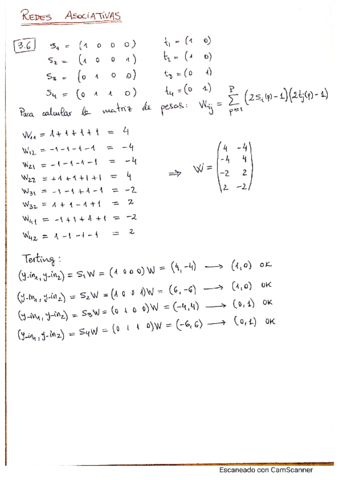 REDES ASOCIATIVAS
3.6 S₁ = (1 0 0 0) t₁ = (1 0)
S₂ = (1 0 0 1) t₂ = (1 0)
S₃ = (0 1 0 0) t₃ = (0 1)
S₄ = (0 1 1 0) t₄ = (0 1)
Para calcular la matriz de pesos: Wᵢⱼ = Σ_{p=1}^{P} (2Sᵢ(p)-1)(2tⱼ(p)-1)
W₁₁ = 1+1+1+1 = 4
W₁₂ = -1-1-1-1 = -4
W₂₁ = -1-1-1-1 = -4
W₂₂ = +1+1+1+1 = 4
W₃₁ = -1-1+1-1 = -2
W₃₂ = 1+1-1+1 = 2
W₄₁ = -1+1+1+1 = -2
W₄₂ = 1-1-1-1 = 2
⟹ Wi = (4 -4
-4 4
-2 2
2 -2)
Testing:
(y-in₁, y-in₂) = S₁W = (1 0 0 0)W = (4,-4) → (1,0) OK
(y-in₁, y-in₂) = S₂W = (1 0 0 1)W = (6,-6) → (1,0) OK
(y-in₁, y-in₂) = S₃W = (0 1 0 0)W = (-4,4) → (0,1) OK
(y-in₁, y-in₂) = S₄W = (0 1 1 0)W = (-6,6) → (0,1) OK
Escaneado con CamScanner